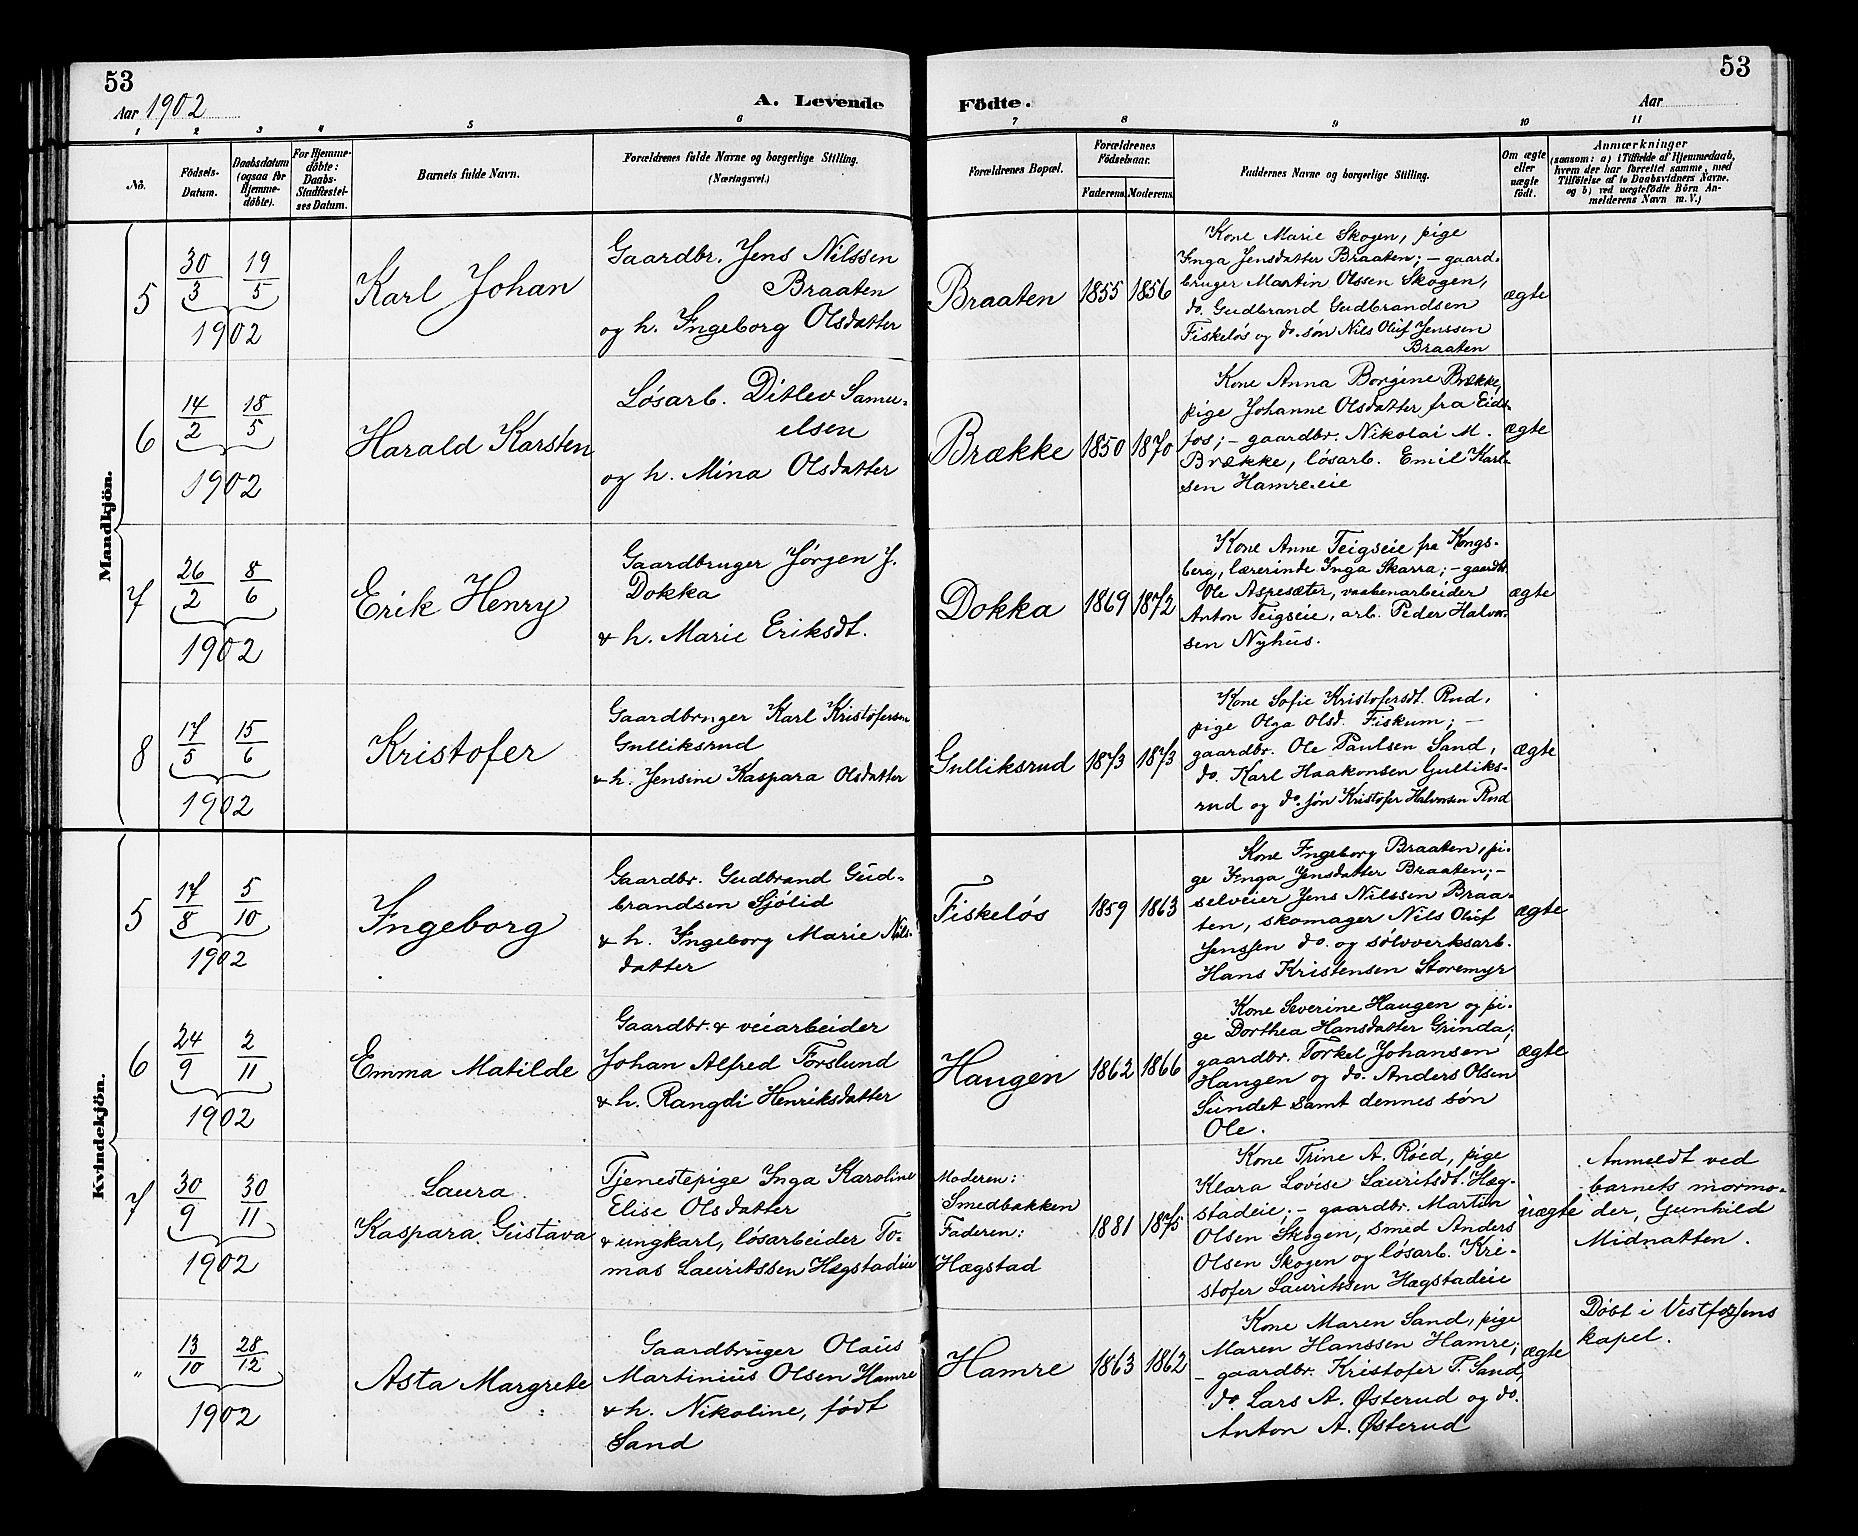 53
53
Aar 1902
A. Levende
Födte.
Aar
1 2 3 4 5 6 7 8 9 10 11
No.
Födsels-
Datum.
Daabsdatum
(ogsaa for
Hjemme-
döbte).
For Hjemme-
döbte:
Daabs-
Stadfæstel-
ses Datum.
Barnets fulde Navn.
Forældrenes fulde Navne og borgerlige Stilling.
(Næringsvei.)
Forældrenes Bopæl.
Forældrenes
Födselsaar.
Faderens.
Moderens.
Faddernes Navne og borgerlige Stilling.
Om ægte
eller
uægte
födt.
Anmærkninger
(saasom: a) i Tilfælde af Hjemmedaab,
hvem der har forrettet samme, med
Tilföielse af to Daabsvidners Navne,
og b) ved uægtefödte Börn An-
melderens Navn m. V.)
Mandkjön.
5
30/3 19/5
1902
Karl Johan
Gaardbr. Jens Nilssen
Braaten
og h. Ingeborg Olsdatter
Braaten
1855 1856
Kone Marie Skogen, pige
Inga Jensdatter Braaten; – gaard-
bruger Martin Olssen Skogen,
do. Gudbrand Gudbrandsen
Fiskeløs og do. søn Nils Oluf Jenssen
Braaten
ægte
6
14/2 18/5
1902
Harald Karsten
Løsarb. Ditlev Samu-
elsen
og h. Mina Olsdatter
Brække
1850 1870
Kone Anna Borgine Brække,
pige Johanne Olsdatter fra Eids-
fos; – gaardbr. Nikolai M.
Brække, løsarb. Emil Karl-
sen Hamreeie
ægte
7
26/2 8/6
1902
Erik Henry
Gaardbruger Jørgen J.
Dokka
& h. Marie Eriksdt.
Dokka
1869 1872
Kone Anne Teigseie fra Kongs-
berg, lærerinde Inga Skarra; – gaardb.
Ole Aspesæter, vaabenarbeider
Anton Teigseie, arb. Peder Halvor-
sen Nyhus.
ægte
8
17/5 15/6
1902
Kristofer
Gaardbruger Karl Kristofersen
Gulliksrud
& h. Jensine Kaspara Olsdatter
Gulliksrud
1873 1873
Kone Sofie Kristofersdt. Rud,
pige Olga Olsd. Fiskum; –
gaardbr. Ole Paulsen Sand,
do. Karl Haakonsen Gulliks-
rud og do. søn Kristofer Halvorsen Rud
ægte
Kvindekjön.
5
17/8 5/10
1902
Ingeborg
Gaardbr. Gudbrand Gud-
brandsen Sjölid
& h. Ingeborg Marie Nils-
datter
Fiskeløs
1859 1863
Kone Ingeborg Braaten, pi-
ge Inga Jensdatter Braaten; –
selveier Jens Nilssen Braa-
ten, skomager Nils Oluf
Jenssen do. og sølvverksarb.
Hans Kristensen Storemyr
ægte
6
24/9 2/11
1902
Emma Matilde
Gaardbr. & veiarbeider
Johan Alfred Forslund
& h. Rangdi Henriksdatter
Haugen
1862 1866
Kone Severine Haugen og pi-
ge Dorthea Hansdatter Grinda;
gaardbr. Torkel Johansen
Haugen og do. Anders Olsen
Sundet samt dennes søn
Ole.
ægte
7
30/9 30/11
1902
Laura
Kaspara Gustava
Tjenestepige Inga Karoline
Elise Olsdatter
& ungkarl, løsarbeider To-
mas Lauritssen Hægstadeie
Moderen:
Smedbakken
Faderen:
Hægstad
1881 1875
Kone Trine A. Røed, pige
Klara Lovise Lauritsdt. Hæg-
stadeie; – gaardbr. Martin
Olsen Skogen, smed Anders
Olsen Skogen og løsarb. Kri-
stofer Lauritssen Hægstadeie
uægte
Anmeldt ved
barnets mormo-
der, Gunhild
Midnatten.
"
13/10 28/12
1902
Asta Margrete
Gaardbruger Olaus
Martinius Olsen Hamre
& h. Nikoline, født
Sand
Hamre
1863 1862
Kone Maren Sand, pige
Maren Hanssen Hamre;
– gaardbr. Kristofer T. Sand,
do. Lars A. Østerud og do.
Anton A. Østerud
ægte
Døbt i Vestfossens
kapel.